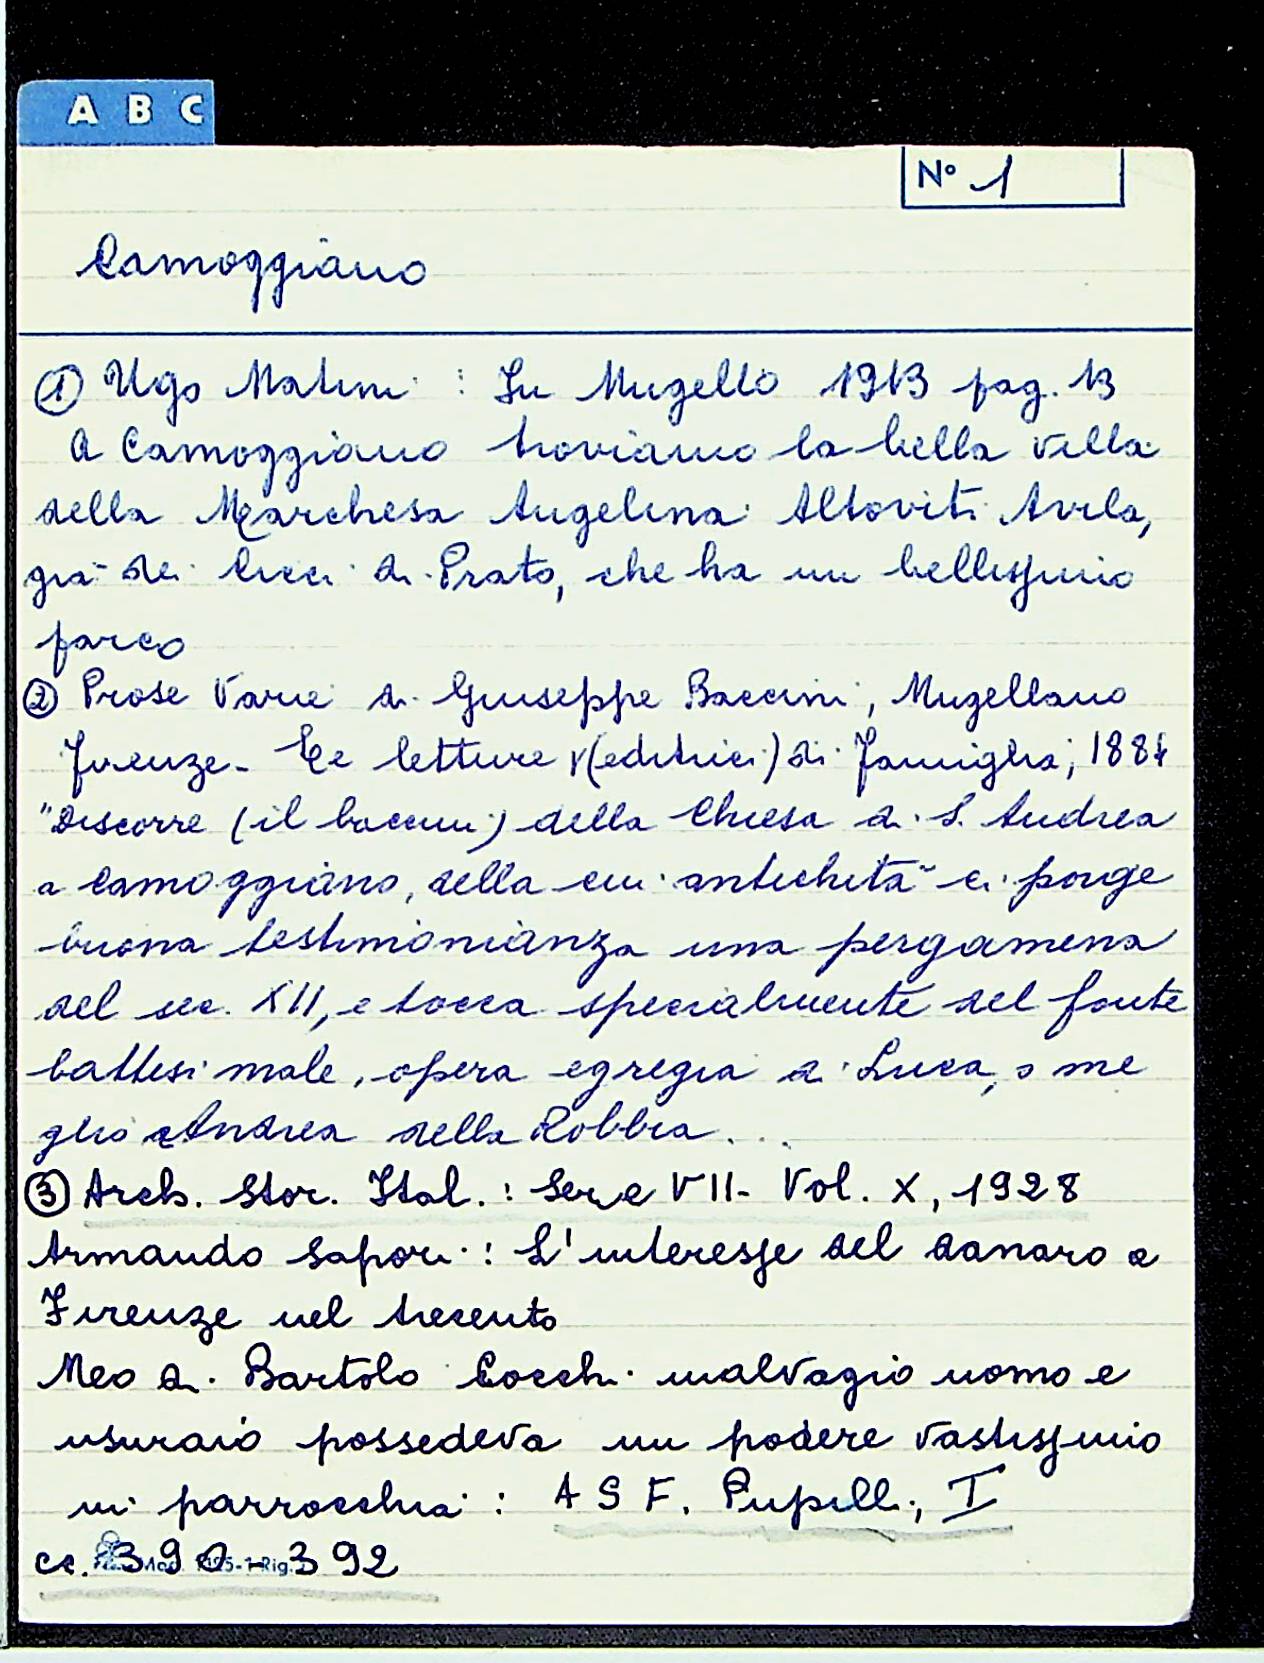 A B C
N° 1
Camoggiano
① Ugo Matini : In Mugello 1913 pag. 13
A Camoggiano troviamo la bella villa
della Marchesa Angelina Altoviti Avila,
già dei Cicci di Prato, che ha un bellissimo
parco
② Prose Varie di Giuseppe Baccini, Mugellano
Firenze - Le letture (editrici) di Famiglia, 1881
"Discorre (il baccini) della Chiesa di S. Andrea
a Camoggiano, della cui antichità ci porge
buona testimonianza una pergamena
del sec. XII, e tocca specialmente del fonte
battesimale, opera egregia di Luca, o me
glio Andrea della Robbia...
③ Arch. Stor. Ital. : Serie VII - Vol. X, 1928
Armando Sapori : L'interesse del danaro a
Firenze nel trecento
Meo di Bartolo Cocchi malvagio uomo e
usuraio possedeva un podere vastissimo
in parrocchia : A S F. Pupilli, I
cc. 390 - 392